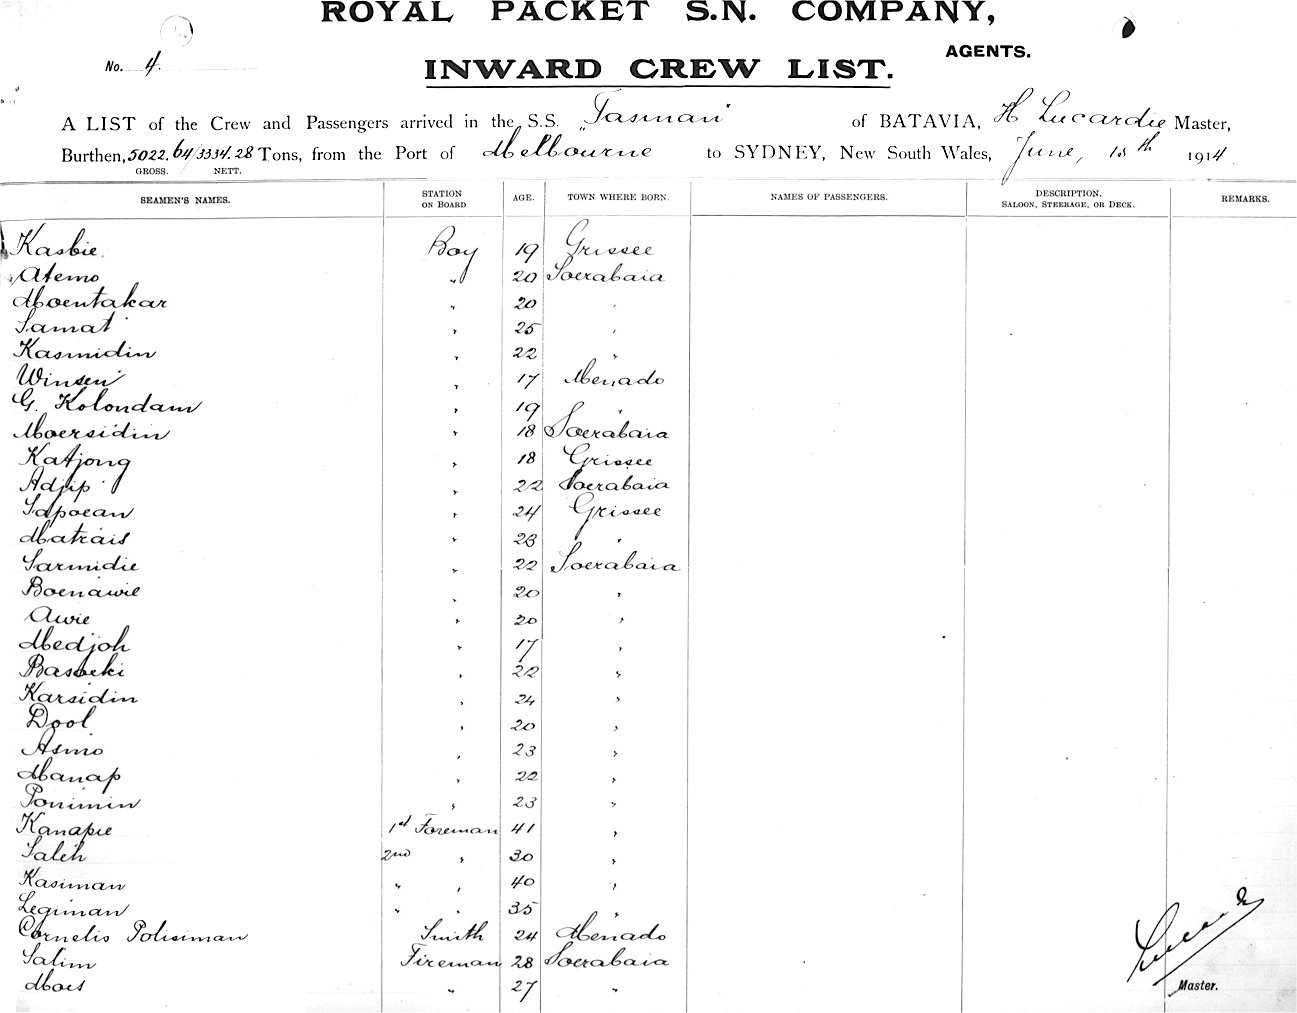 ROYAL PACKET S.N. COMPANY,
AGENTS.
No. 4.
INWARD CREW LIST.
A LIST of the Crew and Passengers arrived in the S.S. "Tasman" of BATAVIA, H Lucardie Master,
Burthen, 5022.64/3334.28 Tons, from the Port of Melbourne to SYDNEY, New South Wales, June, 15th 1914.
GROSS. NETT.
SEAMEN'S NAMES. STATION ON BOARD AGE. TOWN WHERE BORN. NAMES OF PASSENGERS. DESCRIPTION. SALOON, STEERAGE, OR DECK. REMARKS.
Kasbie Boy 19 Grissee
Atemo " 20 Soerabaia
Moentakar " 20 "
Samat " 25 "
Kasmidin " 22 "
Winsen " 17 Menado
G. Kolondam " 19 "
Moersidin " 18 Soerabaia
Katjong " 18 Grissee
Adjip " 22 Soerabaia
Sapoean " 24 Grissee
Matrais " 23 "
Sarmidie " 22 Soerabaia
Boenawie " 20 "
Awie " 20 "
Medjoh " 17 "
Basoeki " 22 "
Karsidin " 24 "
Dool " 20 "
Asmo " 23 "
Manap " 22 "
Ponimin " 23 "
Kanapie 1st Foreman 41 "
Saleh 2nd " 30 "
Kasiman " " 40 "
Legiman " " 35 "
Cornelis Polisiman Smith 24 Menado
Salim Fireman 28 Soerabaia
Moes " 27 "
Master.